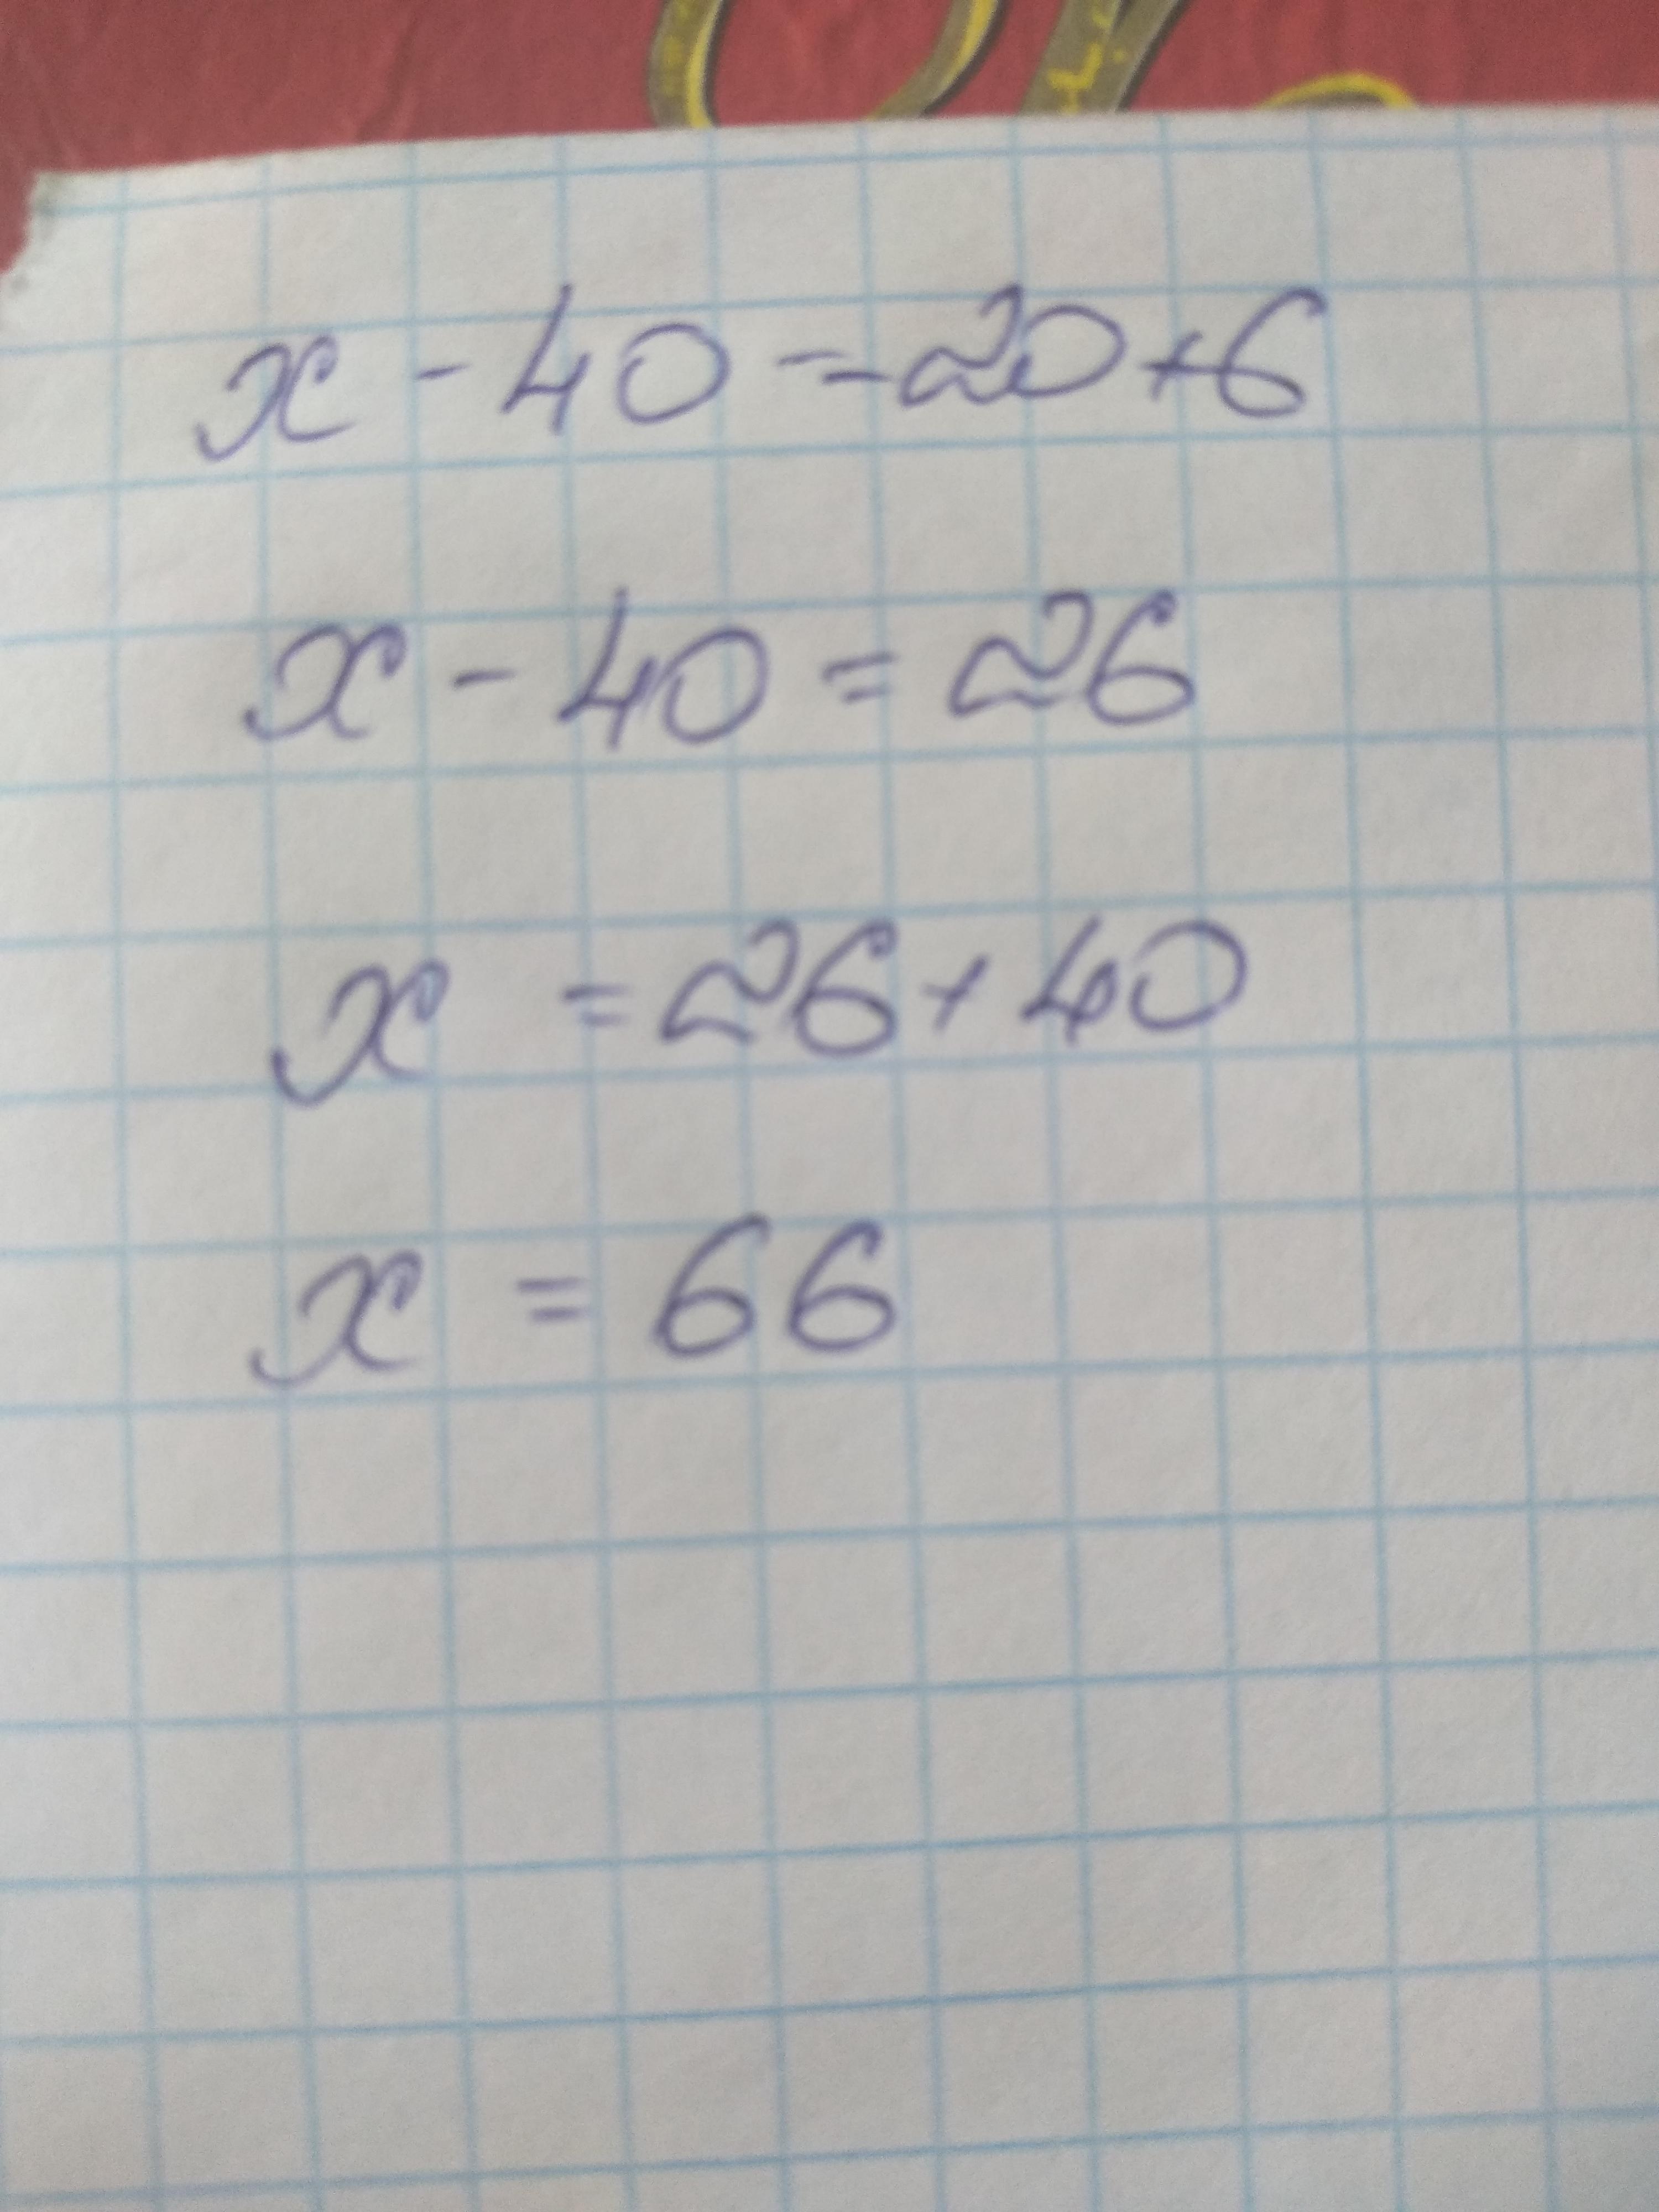 x - 40 = 20 + 6
x - 40 = 26
x = 26 + 40
x = 66